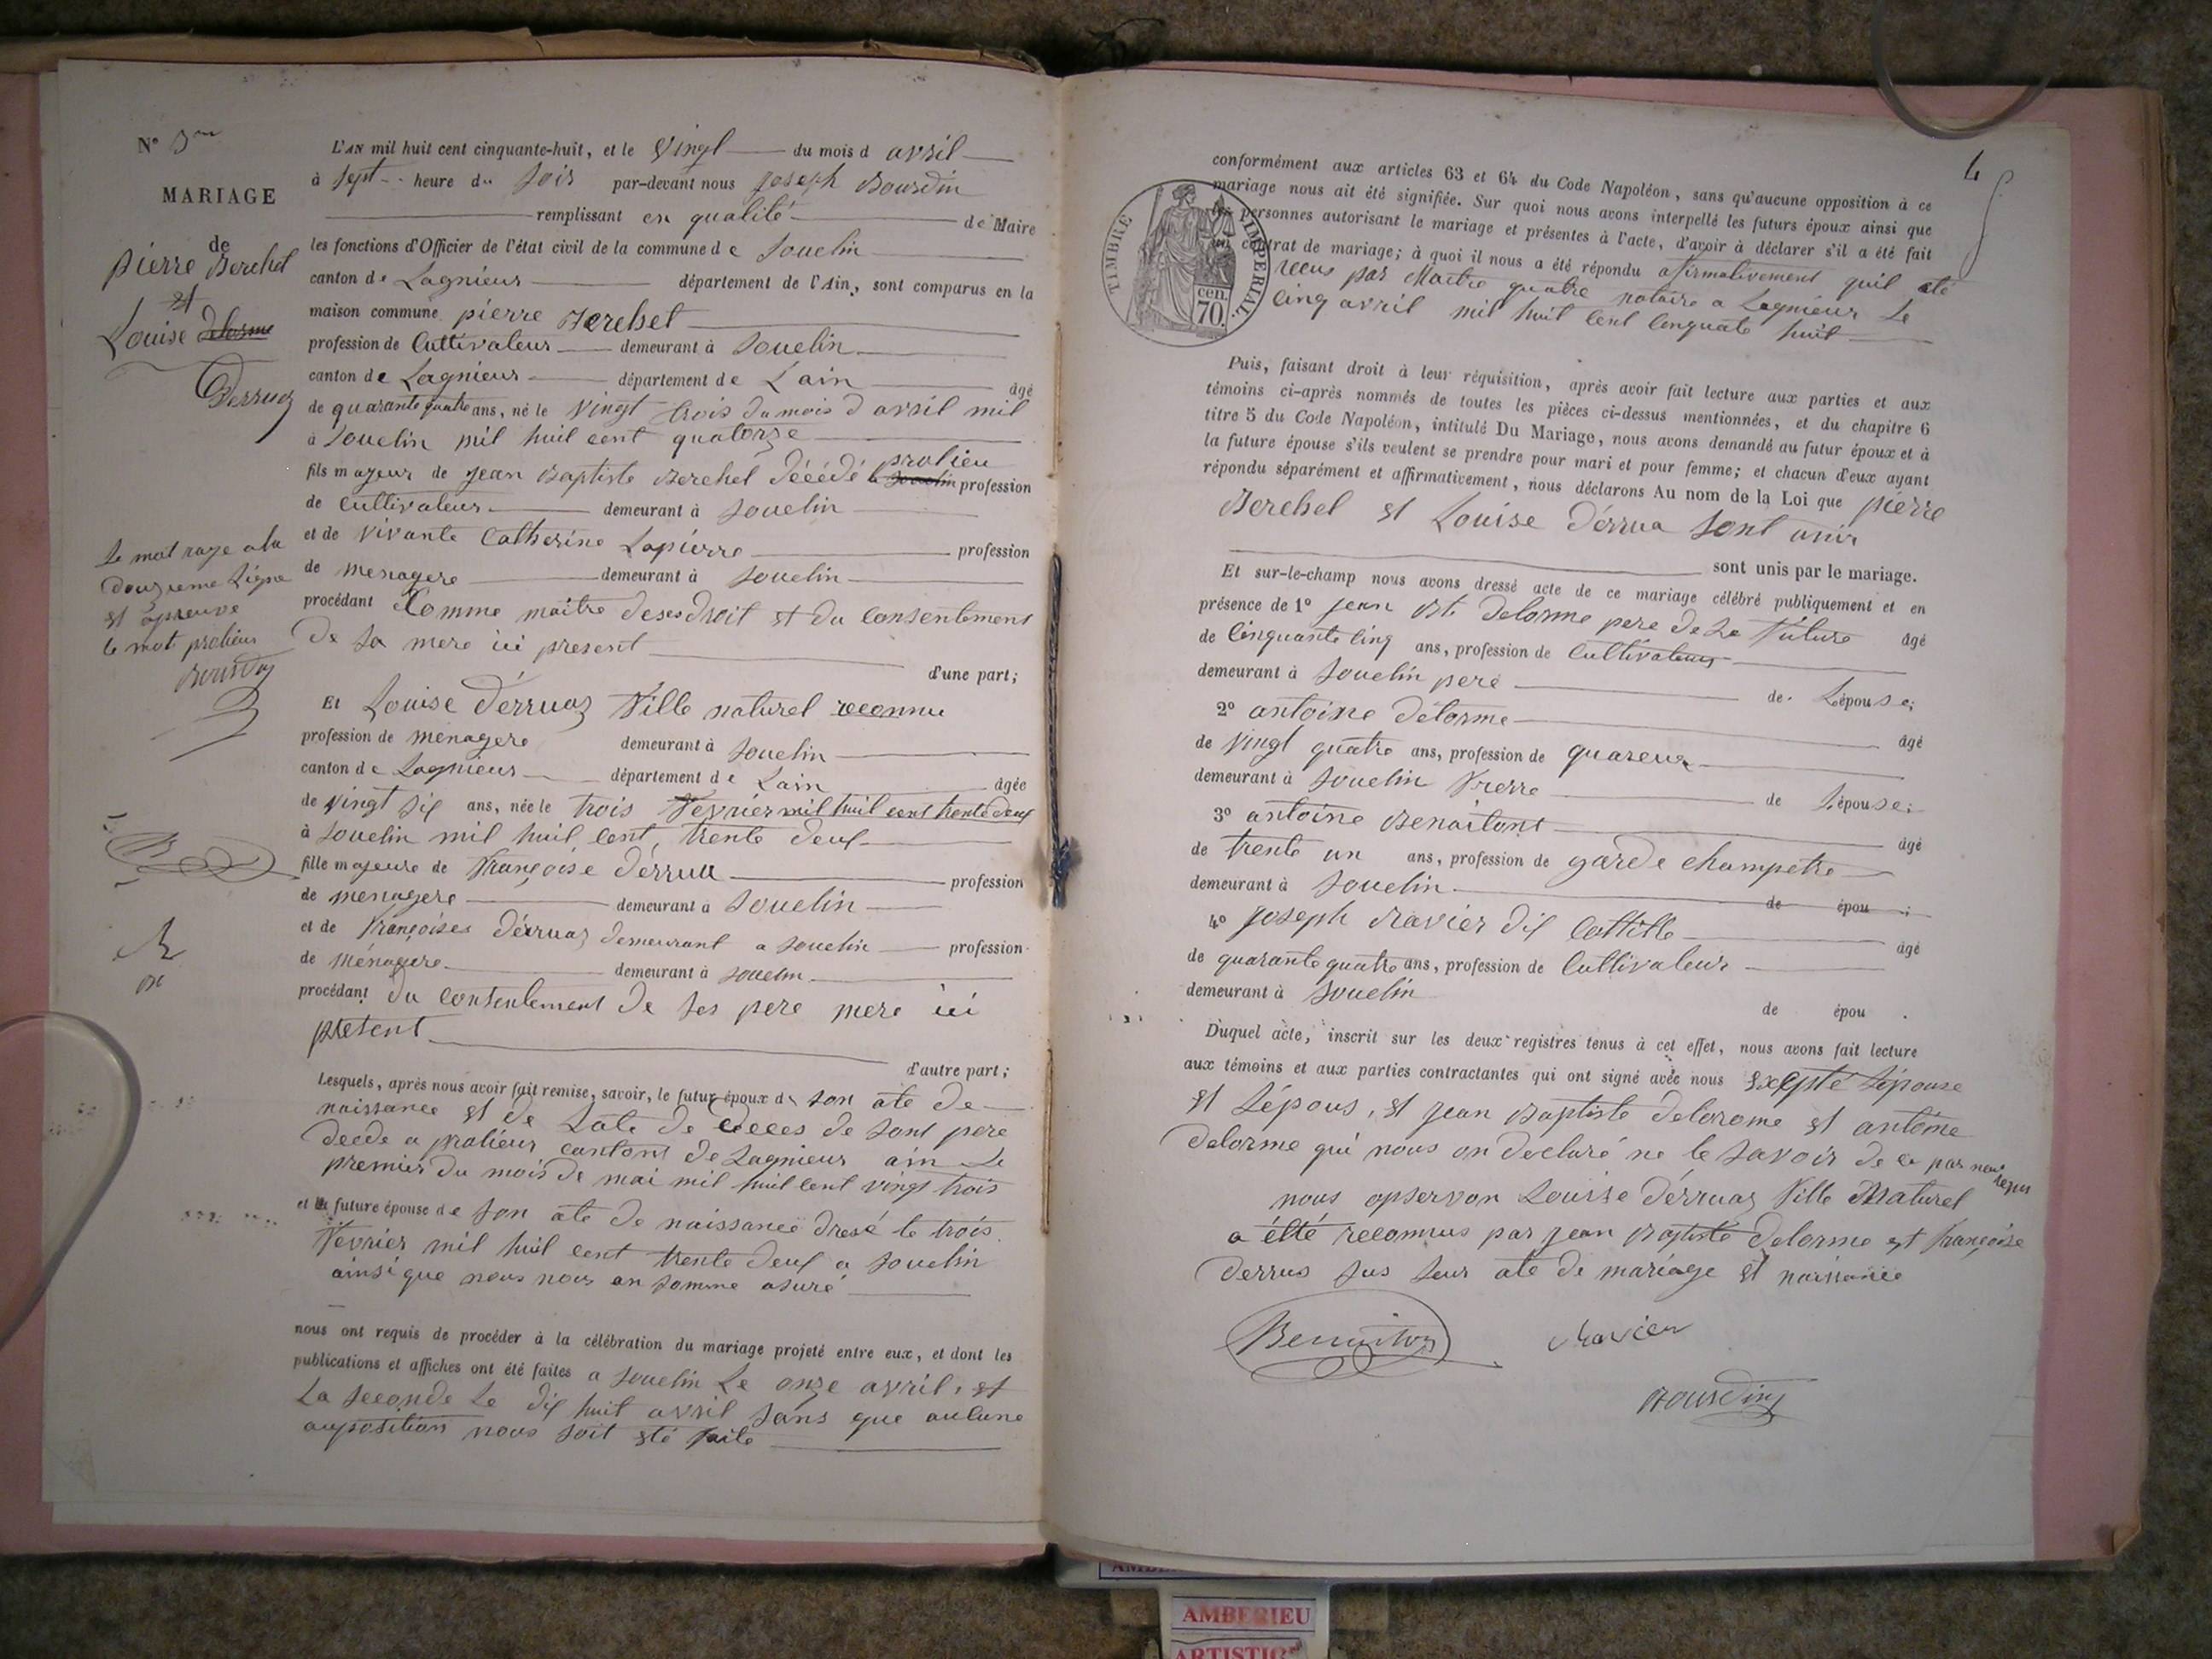 N° 3
MARIAGE
de
pierre Berchet
et
Louise delorme
Derruaz
Le mot raye a la
douzieme Ligne
et apreuve
le mot prolieu
Bourdin
L'AN mil huit cent cinquante-huit, et le vingt du mois d avril
à sept heure du soir par-devant nous joseph Bourdin
remplissant en qualité de Maire
les fonctions d'Officier de l'état civil de la commune de Souclin
canton de Lagnieus département de l'Ain, sont comparus en la
maison commune pierre Berchet
profession de Cultivateur demeurant à Souclin
canton de Lagnieus département de L'ain âgé
de quarante quatre ans, né le vingt trois du mois d avril mil
à Souclin mil huit cent quatorze
fils majeur de jean Baptiste Berchet décédé a Souclin prolieu profession
de Cultivateur demeurant à Souclin
et de vivante Catherine Lapierre profession
de menagere demeurant à Souclin
procédant Comme maitre deses droit et du consentement
de sa mere ici present
d'une part;
Et Louise Dérruaz fille naturel reconnu
profession de menagere demeurant à Souclin
canton de Lagnieus département de Lain âgée
de vingt six ans, née le trois fevrier mil huit cent trente deux
à Souclin mil huit cent, trente deux
fille majeure de françoise Dérrua profession
de menagere demeurant à Souclin
et de françoises Dérruaz demeurant a Souclin profession
de ménagere demeurant à Souclin
procédant du consentement de ses pere mere ici
present
d'autre part;
Lesquels, après nous avoir fait remise, savoir, le futur époux de son ate de
naissance et de Late de deces de sont pere
decede a prolieus cantons de Lagnieus ain Le
premier du mois de mai mil huit cent vingt trois
et la future épouse de son ate de naissance dresé le trois
fevrier mil huit cent trente deux a Souclin
ainsi que nous nous en somme asuré
nous ont requis de procéder à la célébration du mariage projeté entre eux, et dont les
publications et affiches ont été faites a Souclin Le onze avril, et
La seconde Le dix huit avril sans que aucune
auposition nous soit eté faite
4
conformément aux articles 63 et 64 du Code Napoléon, sans qu'aucune opposition à ce
mariage nous ait été signifiée. Sur quoi nous avons interpellé les futurs époux ainsi que
les personnes autorisant le mariage et présentes à l'acte, d'avoir à déclarer s'il a été fait
un contrat de mariage; à quoi il nous a été répondu afirmativement quil eté
recus par Maitre quatre notaire a Lagnieur Le
cinq avril mil huit cent cinquate huit
TIMBRE IMPERIAL
cen. 70.
Puis, faisant droit à leur réquisition, après avoir fait lecture aux parties et aux
témoins ci-après nommés de toutes les pièces ci-dessus mentionnées, et du chapitre 6
titre 5 du Code Napoléon, intitulé Du Mariage, nous avons demandé au futur époux et à
la future épouse s'ils veulent se prendre pour mari et pour femme; et chacun d'eux ayant
répondu séparément et affirmativement, nous déclarons Au nom de la Loi que pierre
Berchet et Louise Dérrua sont unir
sont unis par le mariage.
Et sur-le-champ nous avons dressé acte de ce mariage célébré publiquement et en
présence de 1° jean Bte Delorme pere de La future âgé
de Cinquante cinq ans, profession de Cultivateur
demeurant à Souclin pere de Lépouse;
2° antoine Délorme âgé
de vingt quatre ans, profession de quareur
demeurant à Souclin frerre de Lépouse;
3° antoine Benaitons âgé
de trente un ans, profession de garde champetre
demeurant à Souclin de épou ;
4° joseph Ravier dit Cattitte âgé
de quarante quatre ans, profession de Cultivateur
demeurant à Souclin de épou .
Duquel acte, inscrit sur les deux registres tenus à cet effet, nous avons fait lecture
aux témoins et aux parties contractantes qui ont signé avec nous Exepté Lépouse
et Lépous, et jean Baptiste Delorome et antoine
Delorme qui nous on declaré ne le savoir de ce par nous requis
nous opservon Louise Dérruaz fille Naturel
a étté reconnus par jean Baptiste Delorme et françoise
Derrus sus leur ate de mariage et naissance
Benaiton
Ravier
Bourdin
AMBERIEU
ARTISTIQ